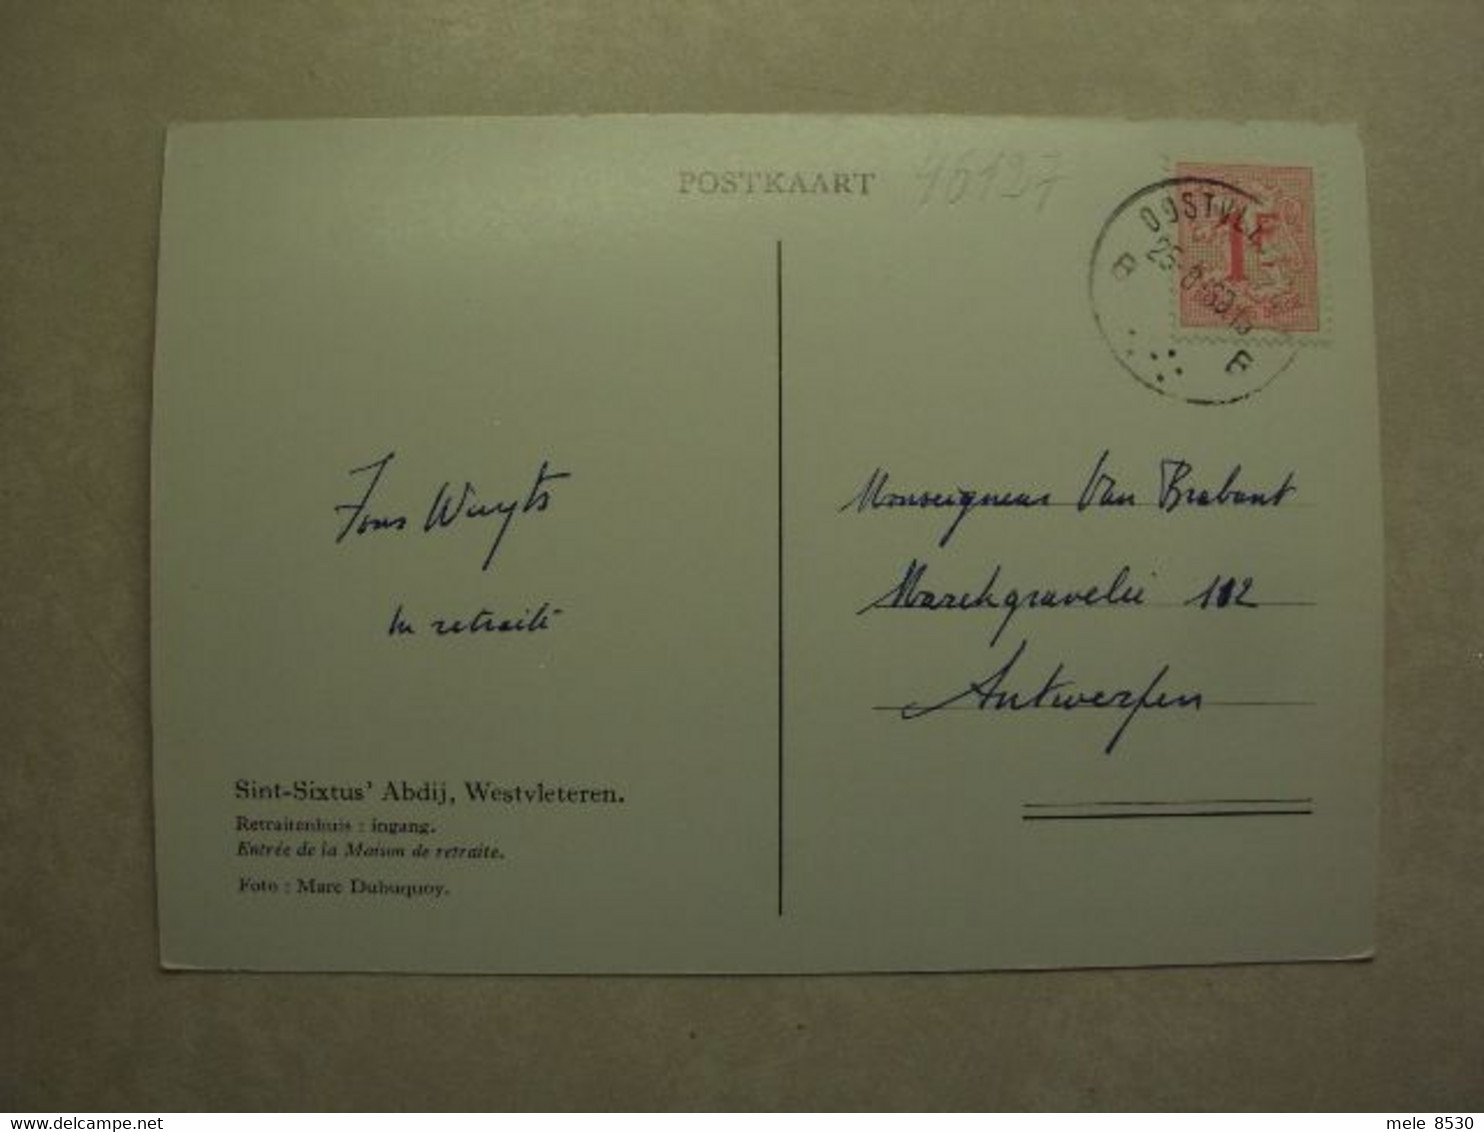 POSTKAART
46197
1F
B
B
Fons Wuyts
in retraite
Monseigneur Van Brabant
Markgravelei 112
Antwerpen
Sint-Sixtus' Abdij, Westvleteren.
Retraitenhuis : ingang.
Entrée de la Maison de retraite.
Foto : Marc Dubuquoy.
mele 8530
delcampe.net